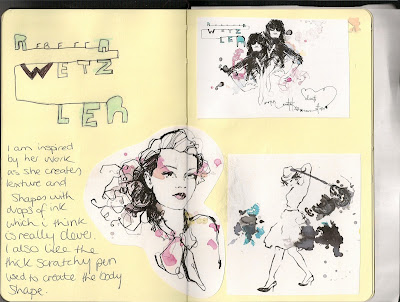 REBECCA
WETZ
LER
I am inspired
by her work
as she creates
texture and
shapes with
drops of ink
which I think
is really clever.
I also like the
thick scratchy pen
used to create the body
shape.
REBECCA
WETZ
LER